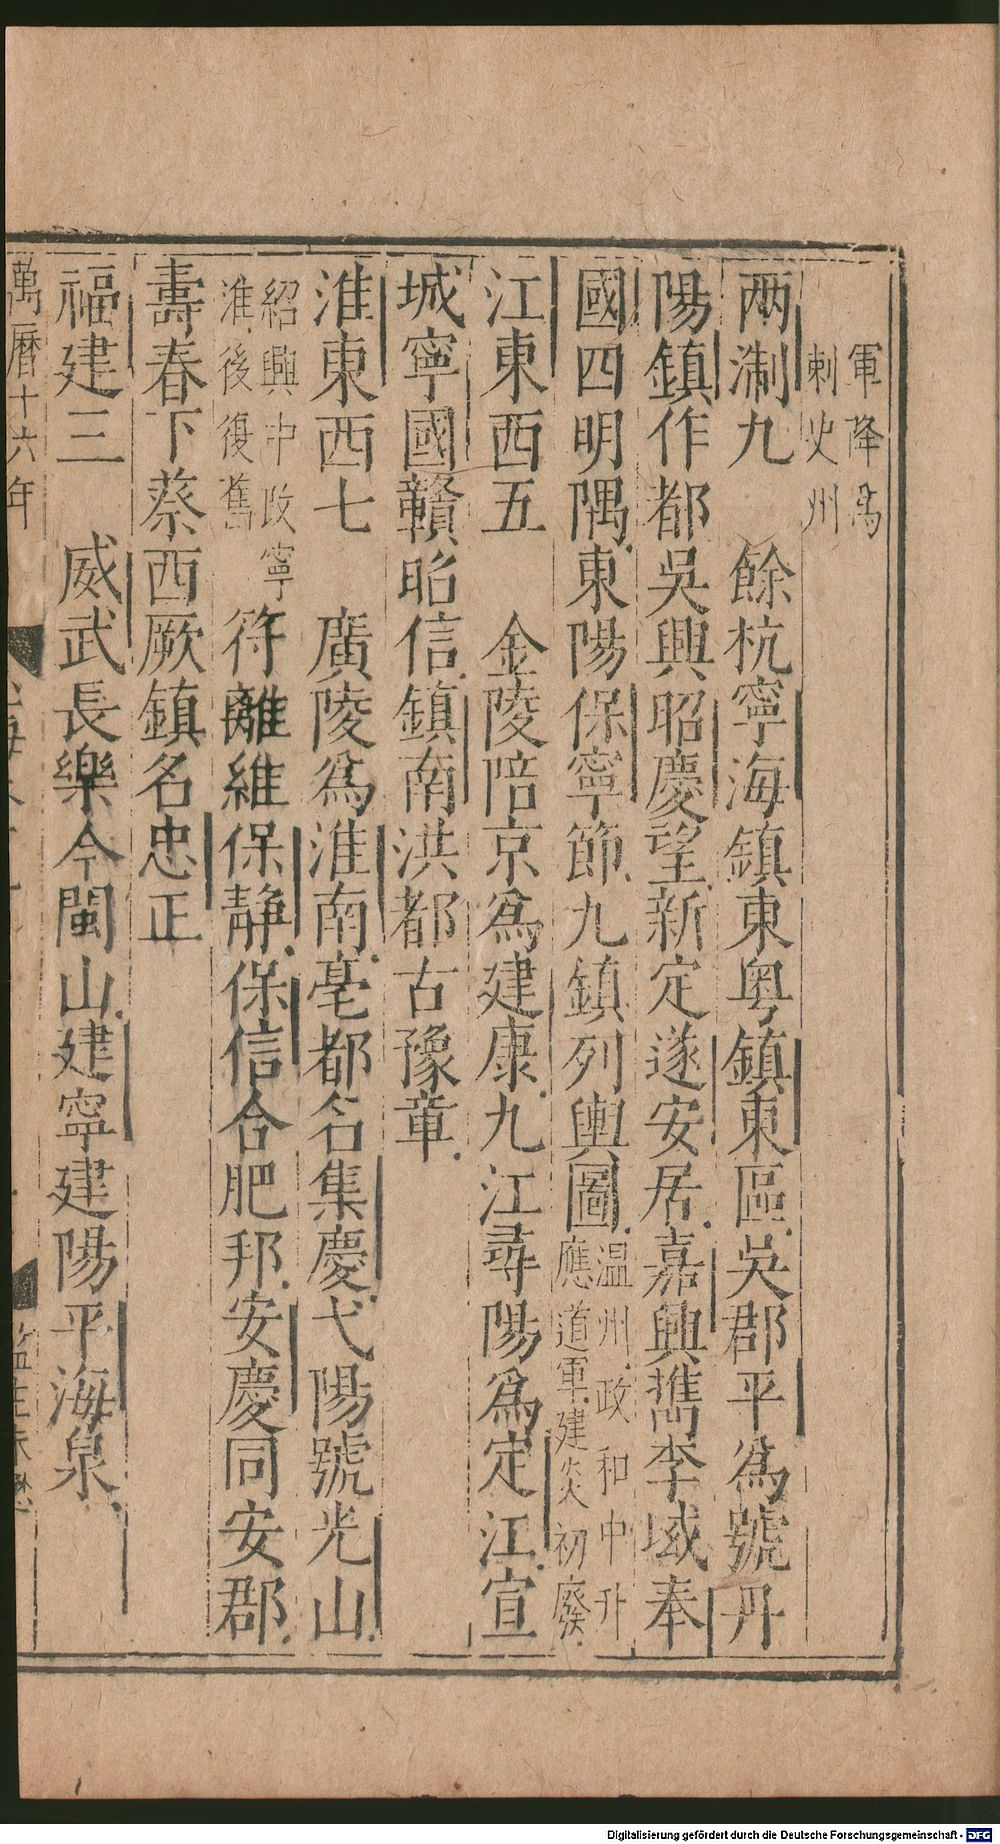 軍降爲
刺史州
两淛九　餘杭寧海鎮東粤鎮東區吳郡平爲號丹
陽鎮作都吳興昭慶望新定遂安居嘉興檇李域奉
國四明隅東陽保寧節九鎮列輿圖温州政和中升
應道軍建炎初廢
江東西五　金陵陪京爲建康九江尋陽爲定江宣
城寧國贛昭信鎮南洪都古豫章
淮東西七　廣陵爲淮南亳都名集慶弋陽號光山
紹興中改寧
淮後復舊符離維保静保信合肥邦安慶同安郡
壽春下蔡西厥鎮名忠正
福建三　威武長樂今閩山建寧建陽平海泉
萬曆十六年
Digitalisierung gefördert durch die Deutsche Forschungsgemeinschaft - DFG